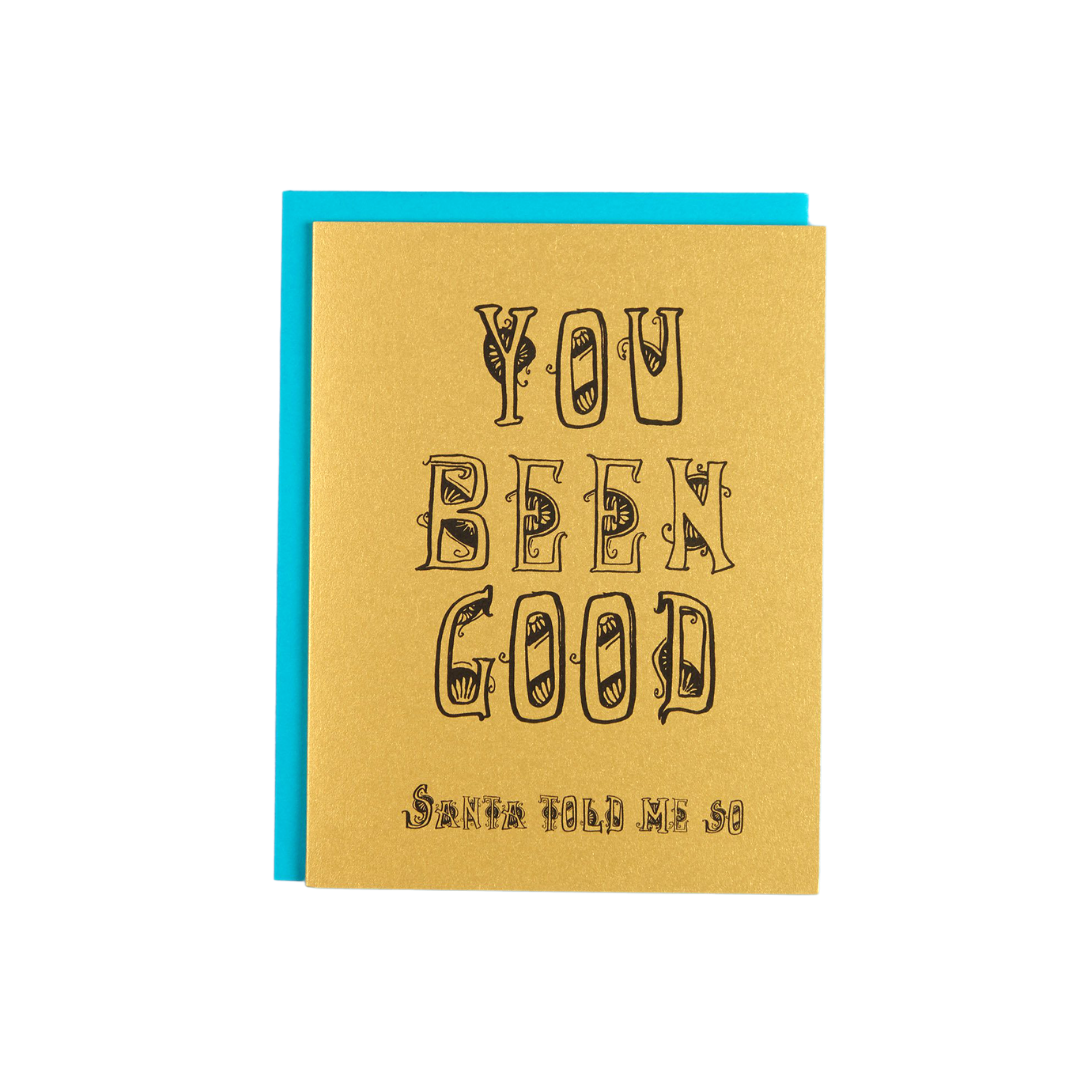 YOU
BEEN
GOOD
SANTA TOLD ME SO